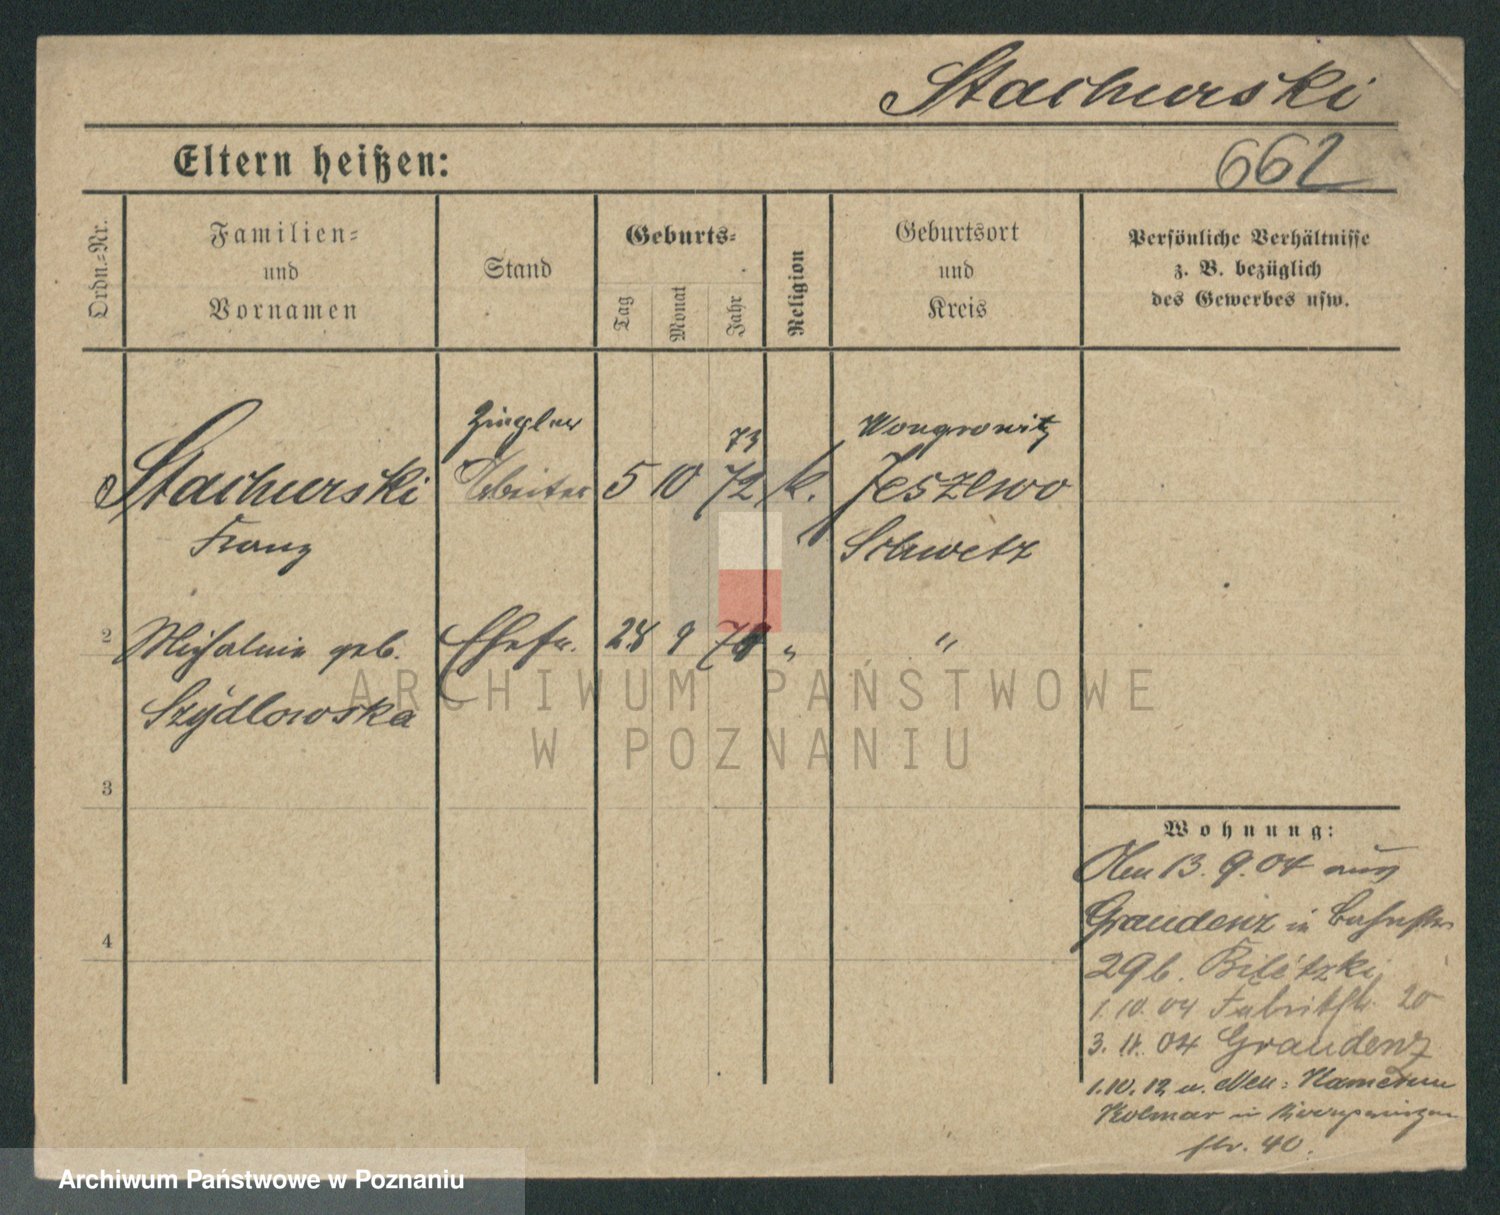 Stachurski
Eltern heißen:
662
Ordn.-Nr.
Familien-
und
Vornamen
Stand
Geburts-
Tag
Monat
Jahr
Religion
Geburtsort
und
Kreis
Persönliche Verhältnisse
z. B. bezüglich
des Gewerbes usw.
Ziegler 73 Wongrowitz
Stachurski Arbeiter 5 10 72 k. Jeszewo
Franz Schwetz
2 geb. Ehefr. 28 9 " "
Szydlowska
3
4
ARCHIWUM PAŃSTWOWE
W POZNANIU
Wohnung:
Den 13. 9. 04 aus
Graudenz in
29b.
1. 10. 04 Fabrikstr. 20
3. 11. 04 Graudenz
1.10.12 u. Neu:
Kolmar in
str. 40.
Archiwum Państwowe w Poznaniu